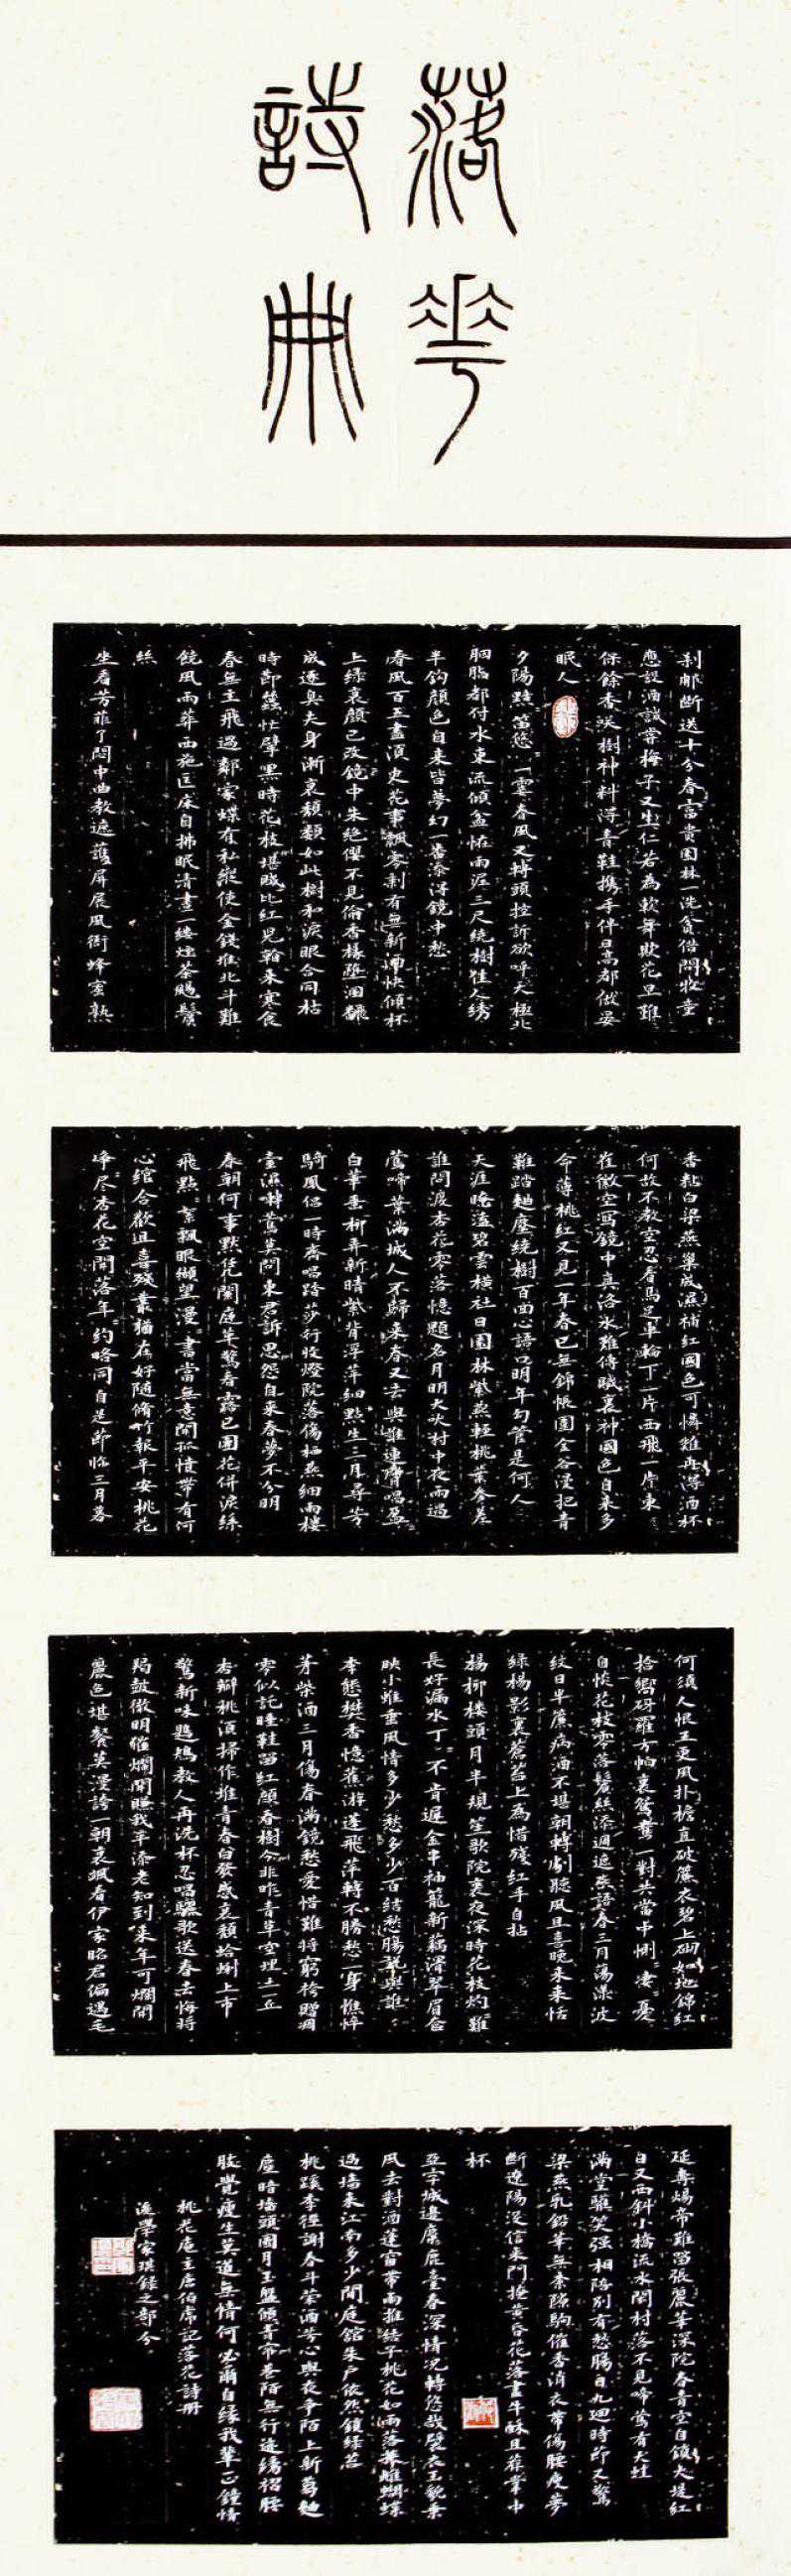 落花
詩冊
剎那斷送十分春富貴園林一洗貧借問牧童
應設酒試嘗梅子又生仁若為軟舞欺花旦難
保餘香笑樹神料得青鞋攜手伴日高都做晏
眠人
夕陽黯笛悠一霎春風又轉頭控訴欲呼天極北
胭脂都付水東流傾盆怪雨泥三尺繞樹佳人繡
半鉤顏色自來皆夢幻一番添得鏡中愁
春風百五盡須臾花事飄零剩有無新酒快傾杯
上綠衰顏已改鏡中朱絕纓不見偷香椽墮溷翻
成逐臭夫身漸衰頹類如此樹和淚眼合同枯
時節蠶忙擘黑時花枝堪賦比紅兒看來寒食
春無主飛過鄰家蝶有私縱使金錢堆北斗難
饒風雨葬西施匡床自拂眠清晝一縷煙茶颺鬢
絲
坐看芳菲了悶中曲教遮護屏展風衙蜂蜜熟
香黏白梁燕巢成濕補紅國色可憐難再得酒杯
何故不教空忍看馬足車輪下一片西飛一片東
崔徽空寫鏡中真洛水難傳賦裏神國色自來多
命薄桃紅又見一年春已無錦帳圍金谷漫把青
鞋踏麴塵繞樹百回心語口明年勾管是何人
天涯晻靄碧雲橫社日園林紫燕輕桃葉參差
誰問渡杏花零落憶題名月明犬吠村中夜雨過
鶯啼葉滿城人不歸來春又去與誰連臂唱盈盈
白華垂柳弄新晴紫背浮萍細點生三月尋芳
騎鳳侶一時齊唱踏莎行收燈院落傷梢燕細雨樓
臺濕囀鶯莫問東君訴恩怨自來春夢不分明
春朝何事默憑闌庭草驚看露已團花併淚絲
飛點絮飄眼纈望漫書當無意開孤憤帶有何
心綰合歡且喜殘叢猶在好隨脩竹報平安桃花
淨尽杏花空開落年約略同自是節臨三月暮
何須人恨五更風扑檐直破簾衣碧上砌如地錦紅
拾向砑羅方帕裏鴛鴦一對共當中惻惻淒憂
自惔花枝零落鬢絲添週遮燕語春三月蕩漾波
紋日半簾病酒不堪朝轉劇聽風且喜晚來恬
綠楊影裏蒼苔上為惜殘紅手自拈
楊柳樓頭月半規笙歌院裏夜深時花枝灼灼難
長好漏水丁丁不肯遲金串袖籠新藕滑翠眉奩
映小蛾垂風情多少愁多少百結愁腸說與誰
李態樊香憶舊游蓬飛萍轉不勝愁一身憔悴
茅柴酒三月傷春滿鏡愁愛惜難將窮袴贈凋
零似託睡鞋留紅顏春樹今非昨青草空埋土一丘
杏瓣桃須掃作堆青春白髮感衰頹蛤蜊上市
驚新味鶗鴂教人再洗杯忍唱驪歌送春去悔將
羯鼓徹明催爛開賺我平添老知到來年可爛開
麗色堪餐莫漫誇一朝哀颯看伊家昭君偏遇毛
延壽煬帝難留張麗華深院青春空自鎖夫堤紅
日又西斜小橋流水閒村落不見啼鶯有犬蛙
滿堂歡笑強相陪別有愁腸日九迴時節又驚
梁燕乳鉛華無柰隙駒催香消衣帶傷腰瘦夢
斷遼陽沒信來門掩黃昏花落盡牛酥且薦掌中
杯
亞字城邊麋鹿臺春深情況轉悠哉襞衣玉貌乘
風去對酒蓬窗帶雨推結子桃花如雨落舞雌蝴蝶
過墻來江南多少閒庭館朱戶依然鎖綠苔
桃蹊李徑謝春榮鬥酒芳心與夜爭陌上新蒭麴
塵暗墻頭團月玉盤傾青帘巷陌無行跡繡褶腰
肢覺瘦生莫道無情何必爾自緣我輩正鍾情
桃花庵主唐伯虎記落花詩冊